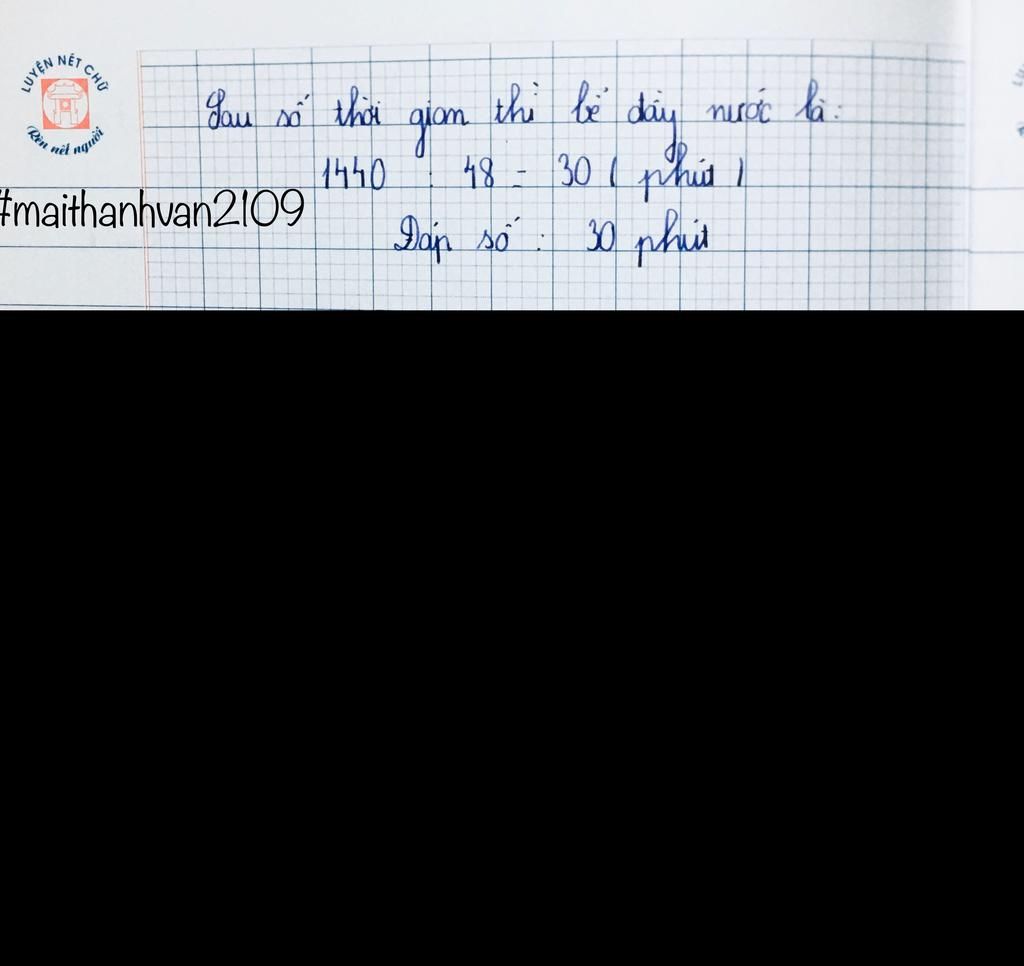 LUYỆN NÉT CHỮ
Rèn nết người
Sau số thời gian thì bể đầy nước là:
1440 : 48 = 30 ( phút )
#maithanhvan2109
Đáp số : 30 phút